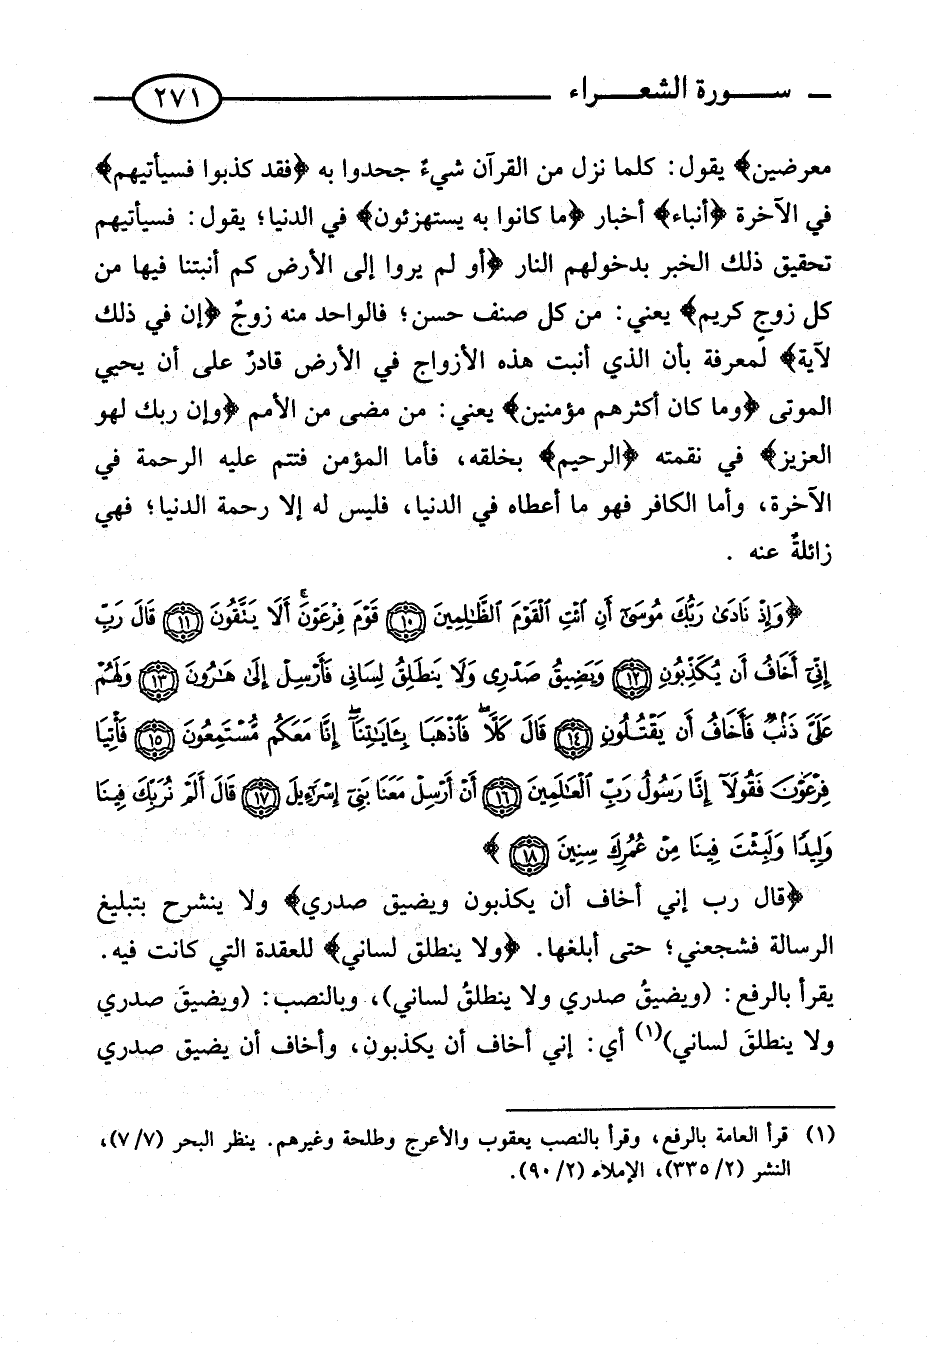 سورة الشعراء ٢٧١
معرضين﴾ يقول: كلما نزل من القرآن شيءٌ جحدوا به ﴿فقد كذبوا فسيأتيهم﴾
في الآخرة ﴿أنباء﴾ أخبار ﴿ما كانوا به يستهزئون﴾ في الدنيا؛ يقول: فسيأتيهم
تحقيق ذلك الخبر بدخولهم النار ﴿أو لم يروا إلى الأرض كم أنبتنا فيها من
كل زوجٍ كريم﴾ يعني: من كل صنف حسن؛ فالواحد منه زوجٌ ﴿إن في ذلك
لآية﴾ لمعرفة بأن الذي أنبت هذه الأزواج في الأرض قادرٌ على أن يحيي
الموتى ﴿وما كان أكثرهم مؤمنين﴾ يعني: من مضى من الأمم ﴿وإن ربك لهو
العزيز﴾ في نقمته ﴿الرحيم﴾ بخلقه، فأما المؤمن فتتم عليه الرحمة في
الآخرة، وأما الكافر فهو ما أعطاه في الدنيا، فليس له إلا رحمة الدنيا؛ فهي
زائلةٌ عنه .
﴿وَإِذْ نَادَىٰ رَبُّكَ مُوسَىٰٓ أَنِ ٱئْتِ ٱلْقَوْمَ ٱلظَّٰلِمِينَ ١٠ قَوْمَ فِرْعَوْنَۚ أَلَا يَتَّقُونَ ١١ قَالَ رَبِّ
إِنِّىٓ أَخَافُ أَن يُكَذِّبُونِ ١٢ وَيَضِيقُ صَدْرِى وَلَا يَنطَلِقُ لِسَانِى فَأَرْسِلْ إِلَىٰ هَٰرُونَ ١٣ وَلَهُمْ
عَلَىَّ ذَنۢبٌ فَأَخَافُ أَن يَقْتُلُونِ ١٤ قَالَ كَلَّاۖ فَٱذْهَبَا بِـَٔايَٰتِنَآۖ إِنَّا مَعَكُم مُّسْتَمِعُونَ ١٥ فَأْتِيَا
فِرْعَوْنَ فَقُولَآ إِنَّا رَسُولُ رَبِّ ٱلْعَٰلَمِينَ ١٦ أَنْ أَرْسِلْ مَعَنَا بَنِىٓ إِسْرَٰٓءِيلَ ١٧ قَالَ أَلَمْ نُرَبِّكَ فِينَا
وَلِيدًا وَلَبِثْتَ فِينَا مِنْ عُمُرِكَ سِنِينَ ١٨ ﴾
﴿قال رب إني أخاف أن يكذبون ويضيق صدري﴾ ولا ينشرح بتبليغ
الرسالة فشجعني؛ حتى أبلغها. ﴿ولا ينطلق لساني﴾ للعقدة التي كانت فيه.
يقرأ بالرفع: (ويضيقُ صدري ولا ينطلقُ لساني)، وبالنصب: (ويضيقَ صدري
ولا ينطلقَ لساني)(١) أي: إني أخاف أن يكذبون، وأخاف أن يضيق صدري
(١) قرأ العامة بالرفع، وقرأ بالنصب يعقوب والأعرج وطلحة وغيرهم. ينظر البحر (٧/٧)،
النشر (٢/ ٣٣٥)، الإملاء (٢/ ٩٠).